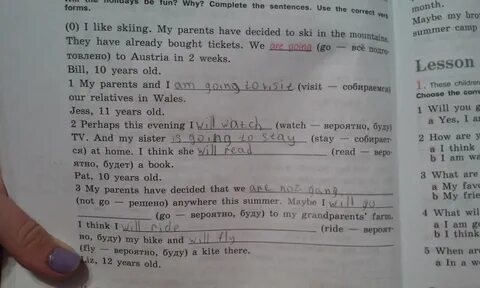 Will the holidays be fun? Why? Complete the sentences. Use the correct verb
forms.
(0) I like skiing. My parents have decided to ski in the mountains.
They have already bought tickets. We are going (go — всё подго-
товлено) to Austria in 2 weeks.
Bill, 10 years old.
1 My parents and I am going to visit (visit — собираемся)
our relatives in Wales.
Jess, 11 years old.
2 Perhaps this evening I will watch (watch — вероятно, буду)
TV. And my sister is going to stay (stay — собирает-
ся) at home. I think she will read (read — веро-
ятно, будет) a book.
Pat, 10 years old.
3 My parents have decided that we are not gang
(not go — решено) anywhere this summer. Maybe I will go
(go — вероятно, буду) to my grandparents' farm.
I think I will ride (ride — вероят-
но, буду) my bike and will fly
(fly — вероятно, буду) a kite there.
Liz, 12 years old.
month.
Maybe my bro
summer camp
Lesson
1. These children
Choose the corre
1 Will you g
a Yes, I a
2 How are y
a I think
b I am wa
3 What are
a My favo
b My frie
4 What will
a I am go
b I think
5 When are
a In a we